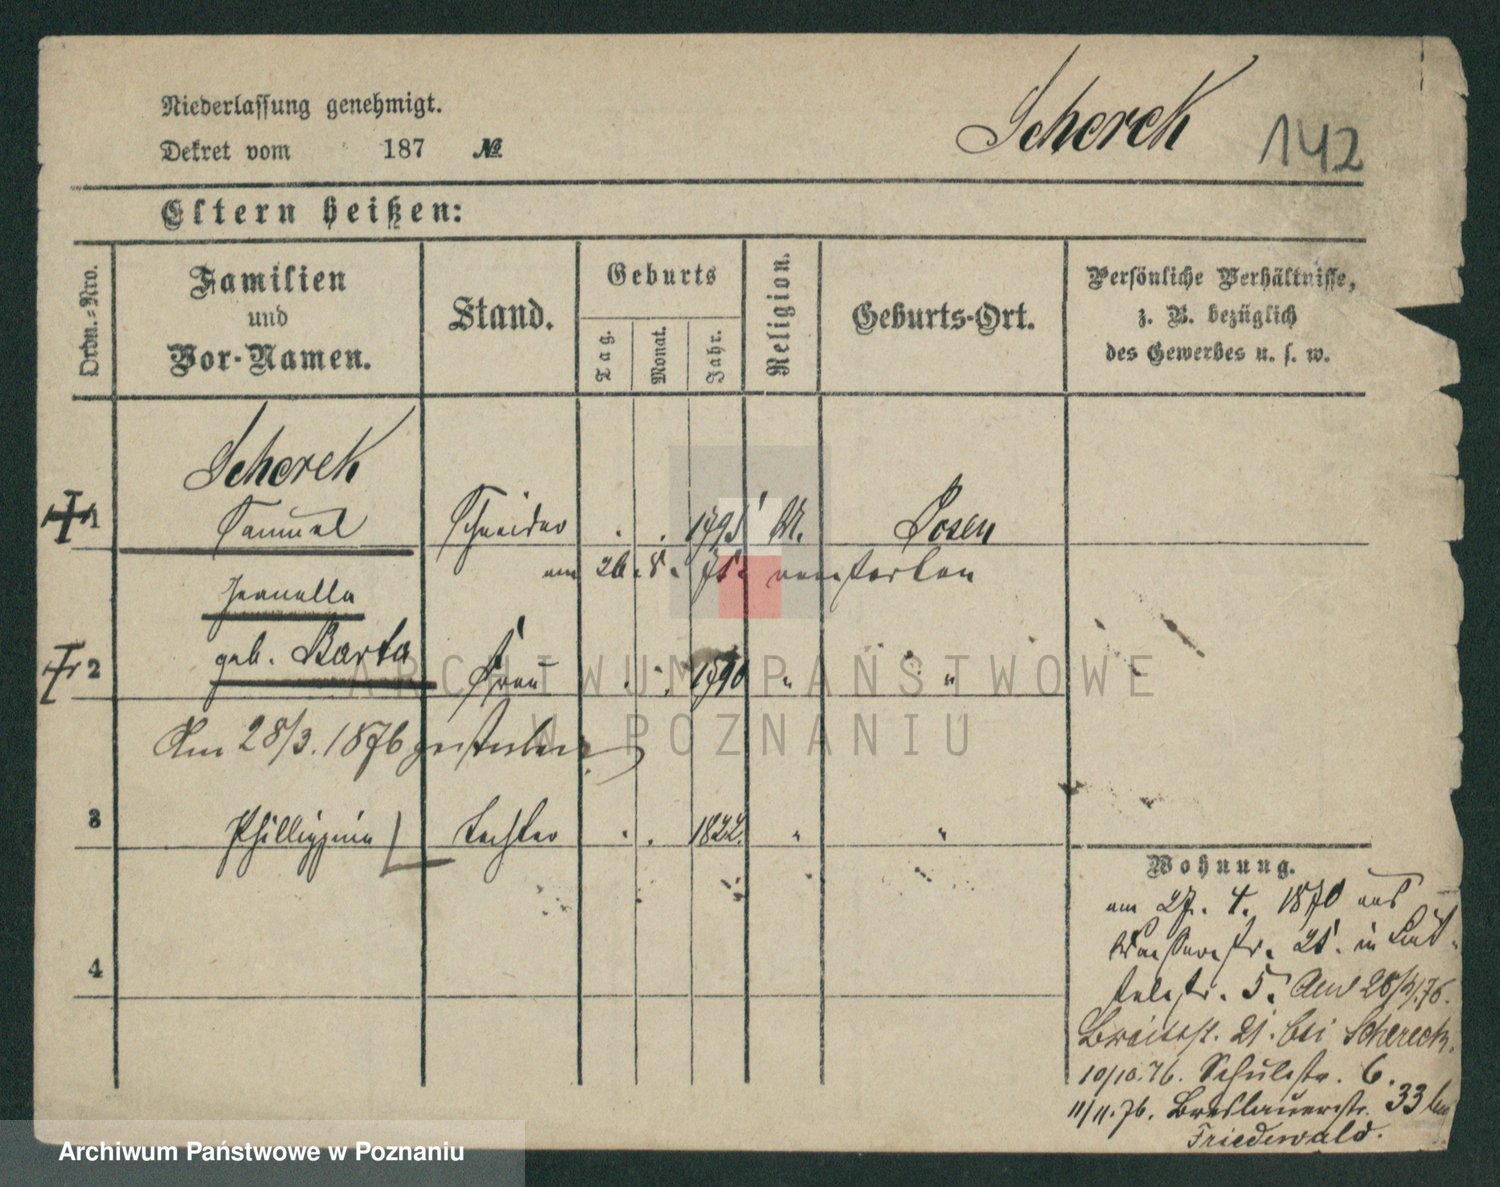 Niederlassung genehmigt.
Dekret vom 187 №
Scherek 142
Eltern heißen:
Ordn.-Nro.
Familien
und
Vor-Namen.
Stand.
Geburts
Tag.
Monat.
Jahr.
Religion.
Geburts-Ort.
Persönliche Verhältnisse,
z. B. bezüglich
des Gewerbes u. s. w.
Scherek
1 Samuel Schneider . . 1795 M. Posen
am 26. 8. 75. verstorben
geb. Barta
2 Frau . . 1790 " "
Am 28/3. 1876 gestorben
3 Philippine Tochter . . 1822. " "
4
Wohnung.
am 27. 4. 1870 aus
Wasserstr. 25. in
5. 28/3/76.
21. bei Schereck.
10/10.76. Schulstr. 6.
11/11.76. Breslauerstr. 33 bei
Friedewald.
ARCHIWUM PAŃSTWOWE
W POZNANIU
Archiwum Państwowe w Poznaniu